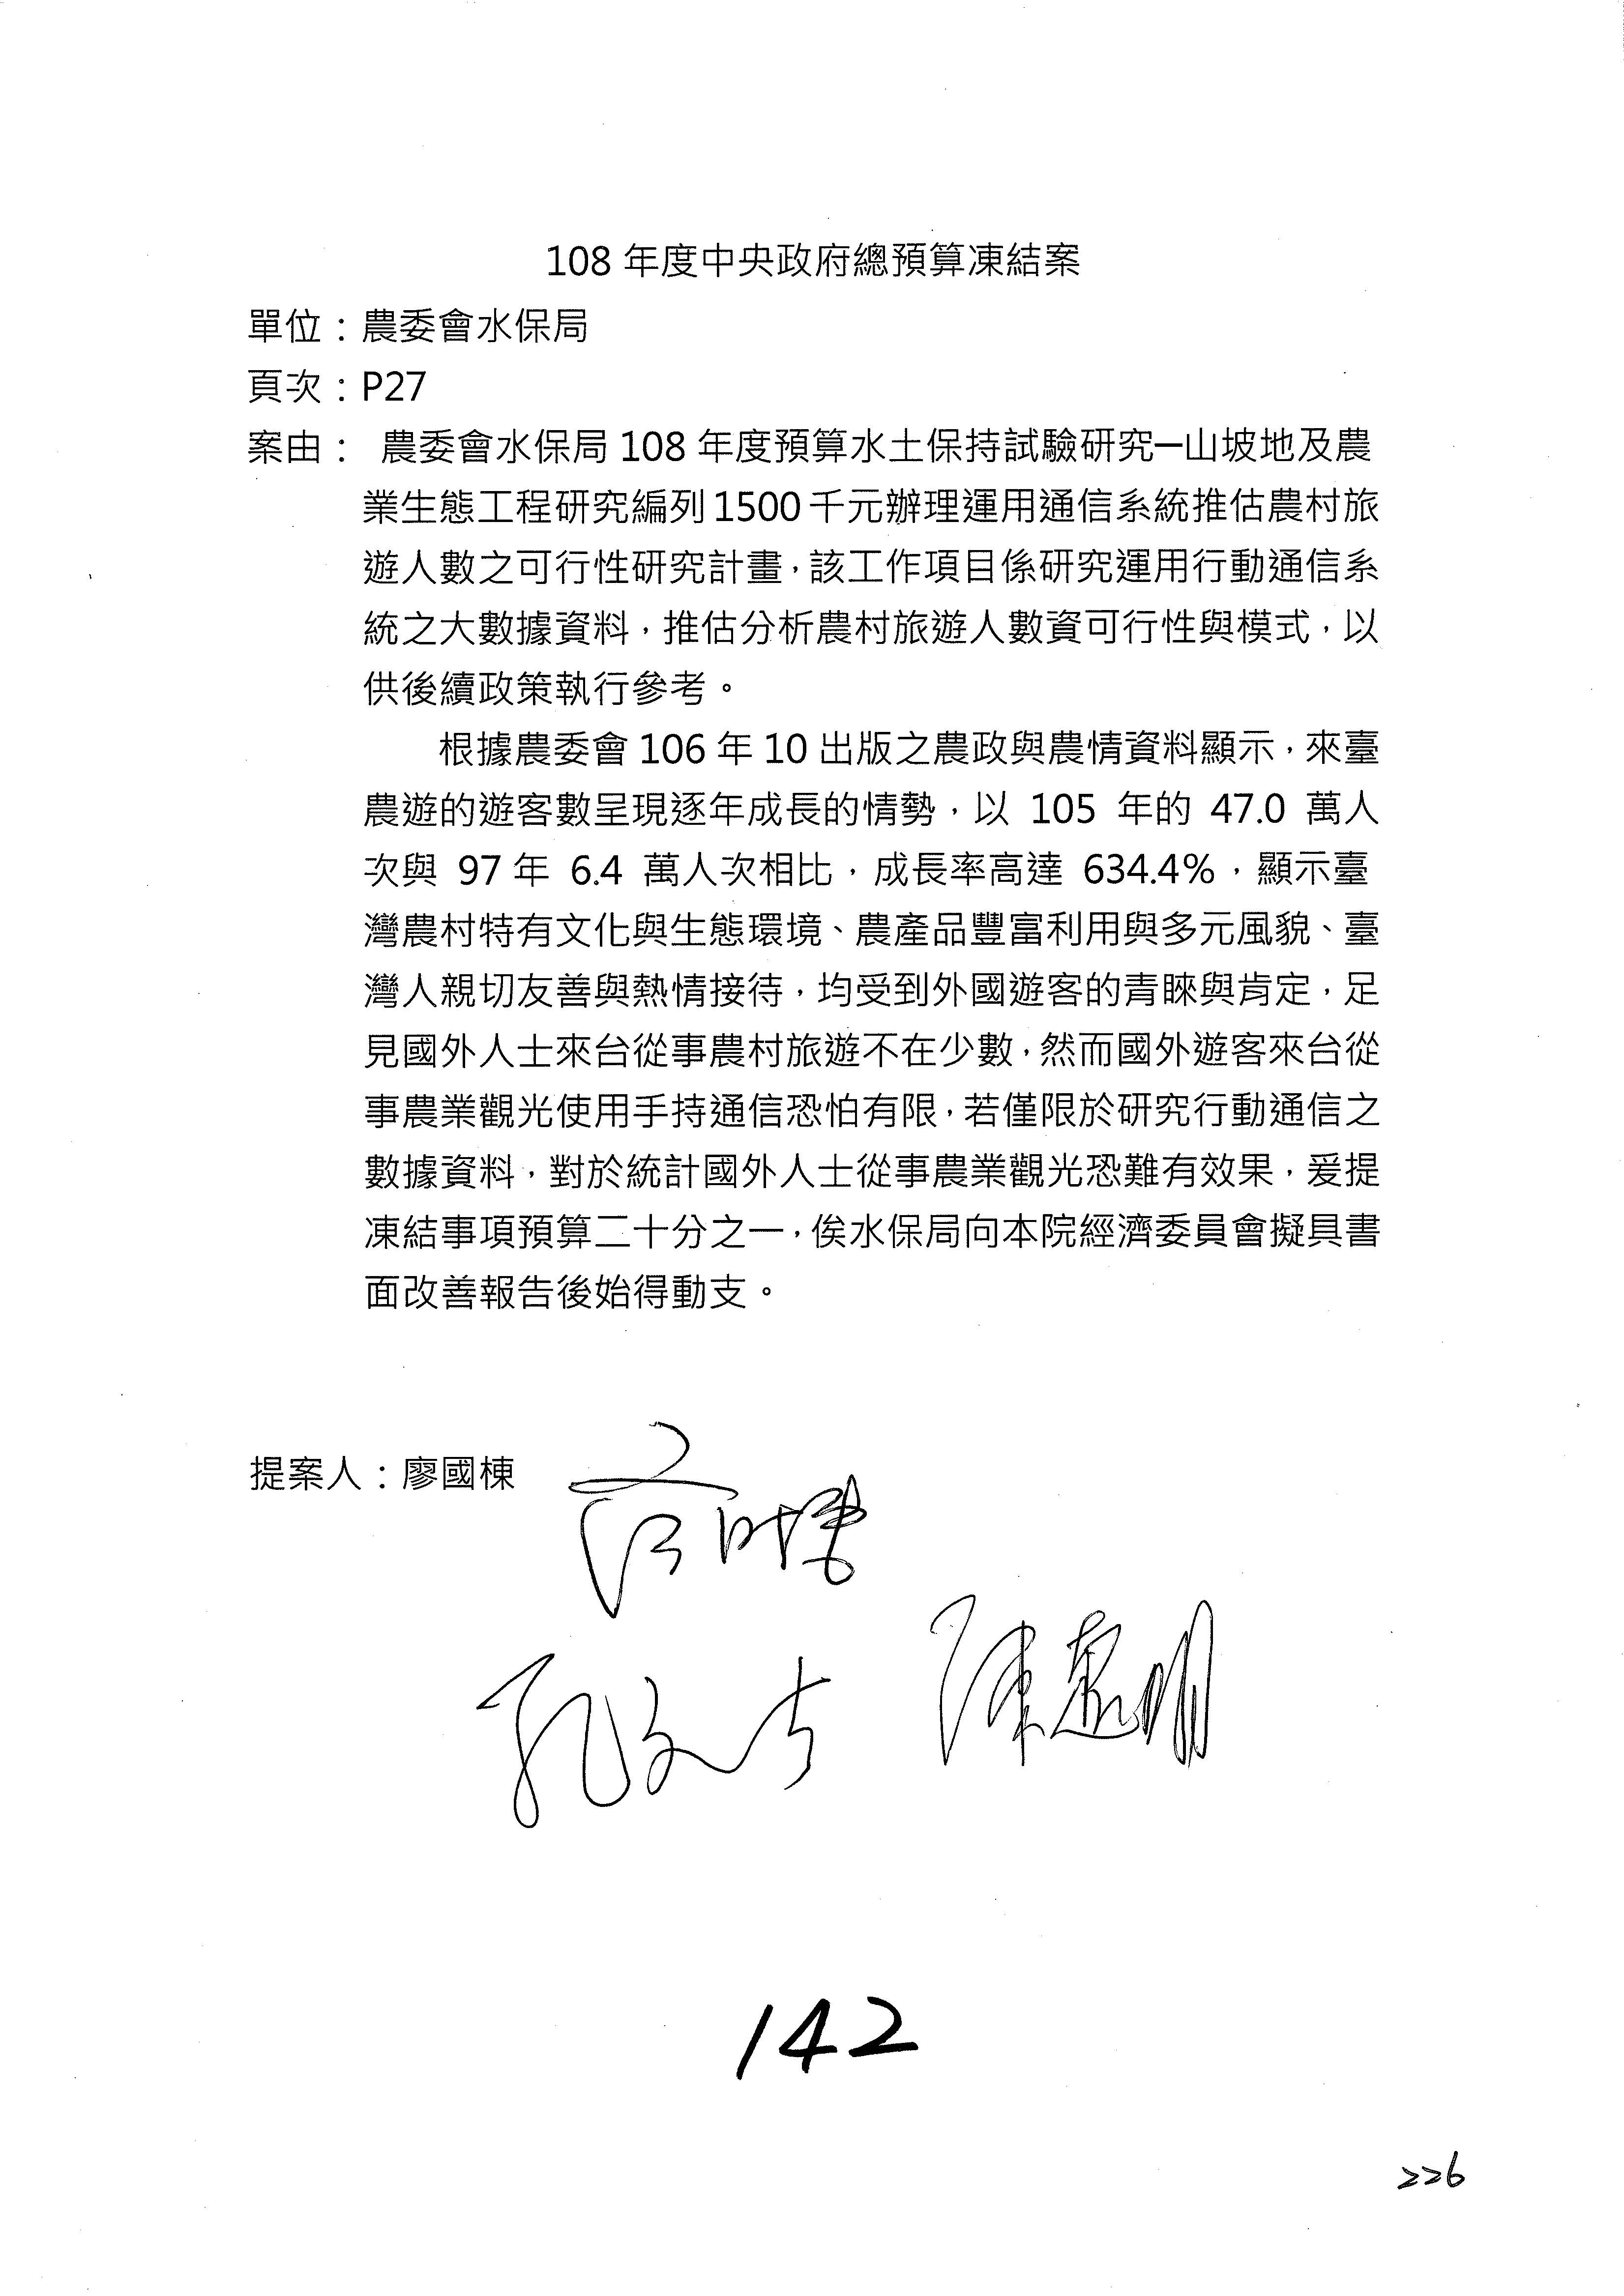 108 年度中央政府總預算凍結案
單位：農委會水保局
頁次：P27
案由： 農委會水保局 108 年度預算水土保持試驗研究─山坡地及農
業生態工程研究編列 1500 千元辦理運用通信系統推估農村旅
遊人數之可行性研究計畫，該工作項目係研究運用行動通信系
統之大數據資料，推估分析農村旅遊人數資可行性與模式，以
供後續政策執行參考。
根據農委會 106 年 10 出版之農政與農情資料顯示，來臺
農遊的遊客數呈現逐年成長的情勢，以 105 年的 47.0 萬人
次與 97 年 6.4 萬人次相比，成長率高達 634.4%，顯示臺
灣農村特有文化與生態環境、農產品豐富利用與多元風貌、臺
灣人親切友善與熱情接待，均受到外國遊客的青睞與肯定，足
見國外人士來台從事農村旅遊不在少數，然而國外遊客來台從
事農業觀光使用手持通信恐怕有限，若僅限於研究行動通信之
數據資料，對於統計國外人士從事農業觀光恐難有效果，爰提
凍結事項預算二十分之一，俟水保局向本院經濟委員會擬具書
面改善報告後始得動支。
提案人：廖國棟
孔文吉
142
226